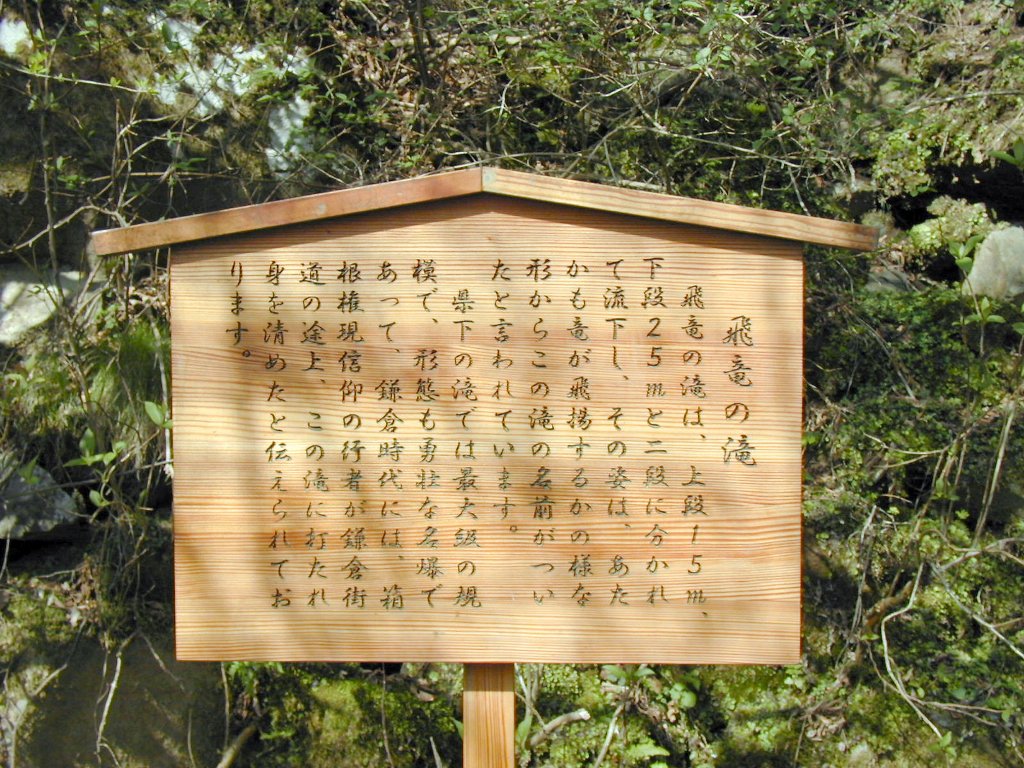 飛竜の滝
飛竜の滝は、上段15m、
下段25mと二段に分かれ
て流下し、その姿は、あた
かも竜が飛揚するかの様な
形からこの滝の名前がつい
たと言われています。
県下の滝では最大級の規
模で、形態も勇壮な名爆で
あって、鎌倉時代には、箱
根権現信仰の行者が鎌倉街
道の途上、この滝に打たれ
身を清めたと伝えられてお
ります。